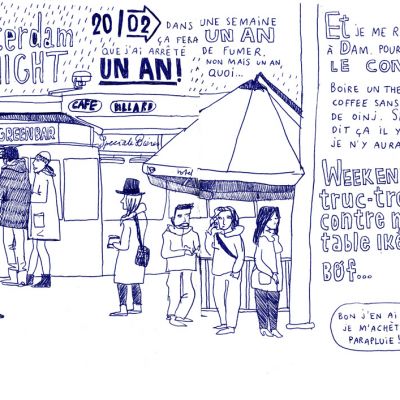 terdam
NIGHT
20/02
DANS UNE SEMAINE
ÇA FERA UN AN
QUE J'AI ARRÊTÉ
DE FUMER.
UN AN!
NON MAIS UN AN,
QUOI...
CAFE BILLARD
GREEN BAR
Speciale Bières
hotel
ET JE ME R
À DAM. POUR
LE CON
BOIRE UN THE
COFFEE SANS
DE OINJ. S
DIT ÇA IL Y
JE N'Y AURA
WEEKEN
truc-tr
contre m
table Iké
BØF...
BON J'EN AI
JE M'ACHÈT
PARAPLUIE!